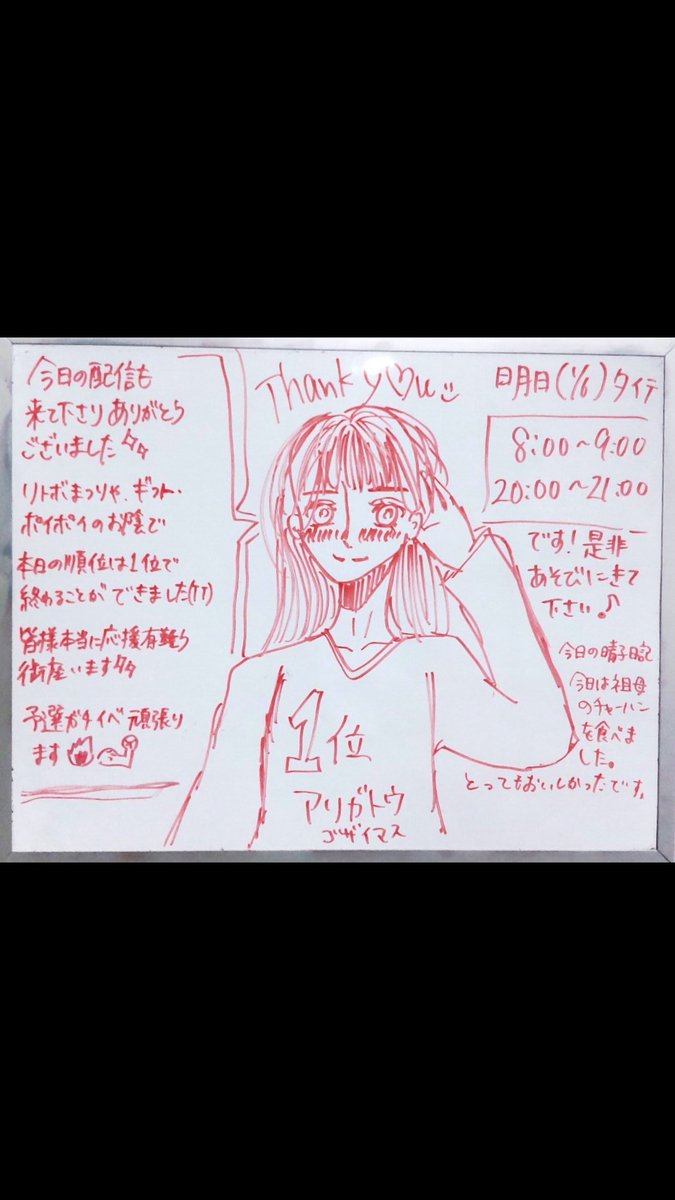 今日の配信も
来て下さりありがとう
ございました
リトボまつりや、ギフト・
ポイポイのお陰で
本日の順位は1位で
終わることができました(TT)
皆様本当に応援有難う
御座います
予選ガチイベ頑張り
ます
Thank y♡u
1位
アリガトウ
ゴザイマス
明日(1/6)タイテ
8:00~9:00
20:00~21:00
です!是非
あそびにきて
下さい。♪
今日の晴子日記
今日は祖母
のチャーハン
を食べま
した。
とってもおいしかったです。